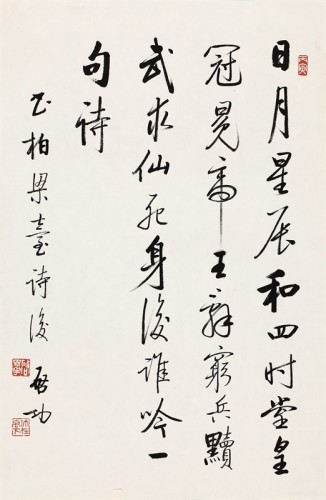 日月星辰和四时堂皇
冠冕帝王辞穷兵黩
武求仙死身後谁吟一
句诗
书柏梁臺诗後
启功